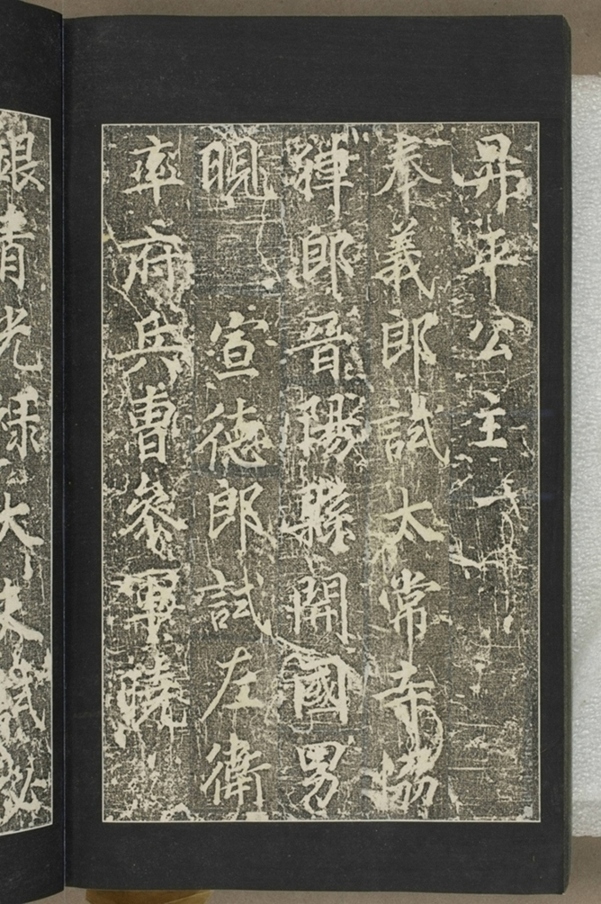 昇平公主
奉義郎試太常寺協
律郎晉陽縣開國男
晛 宣德郎試左衛
率府兵曹參軍曉
銀青光祿大夫試祕